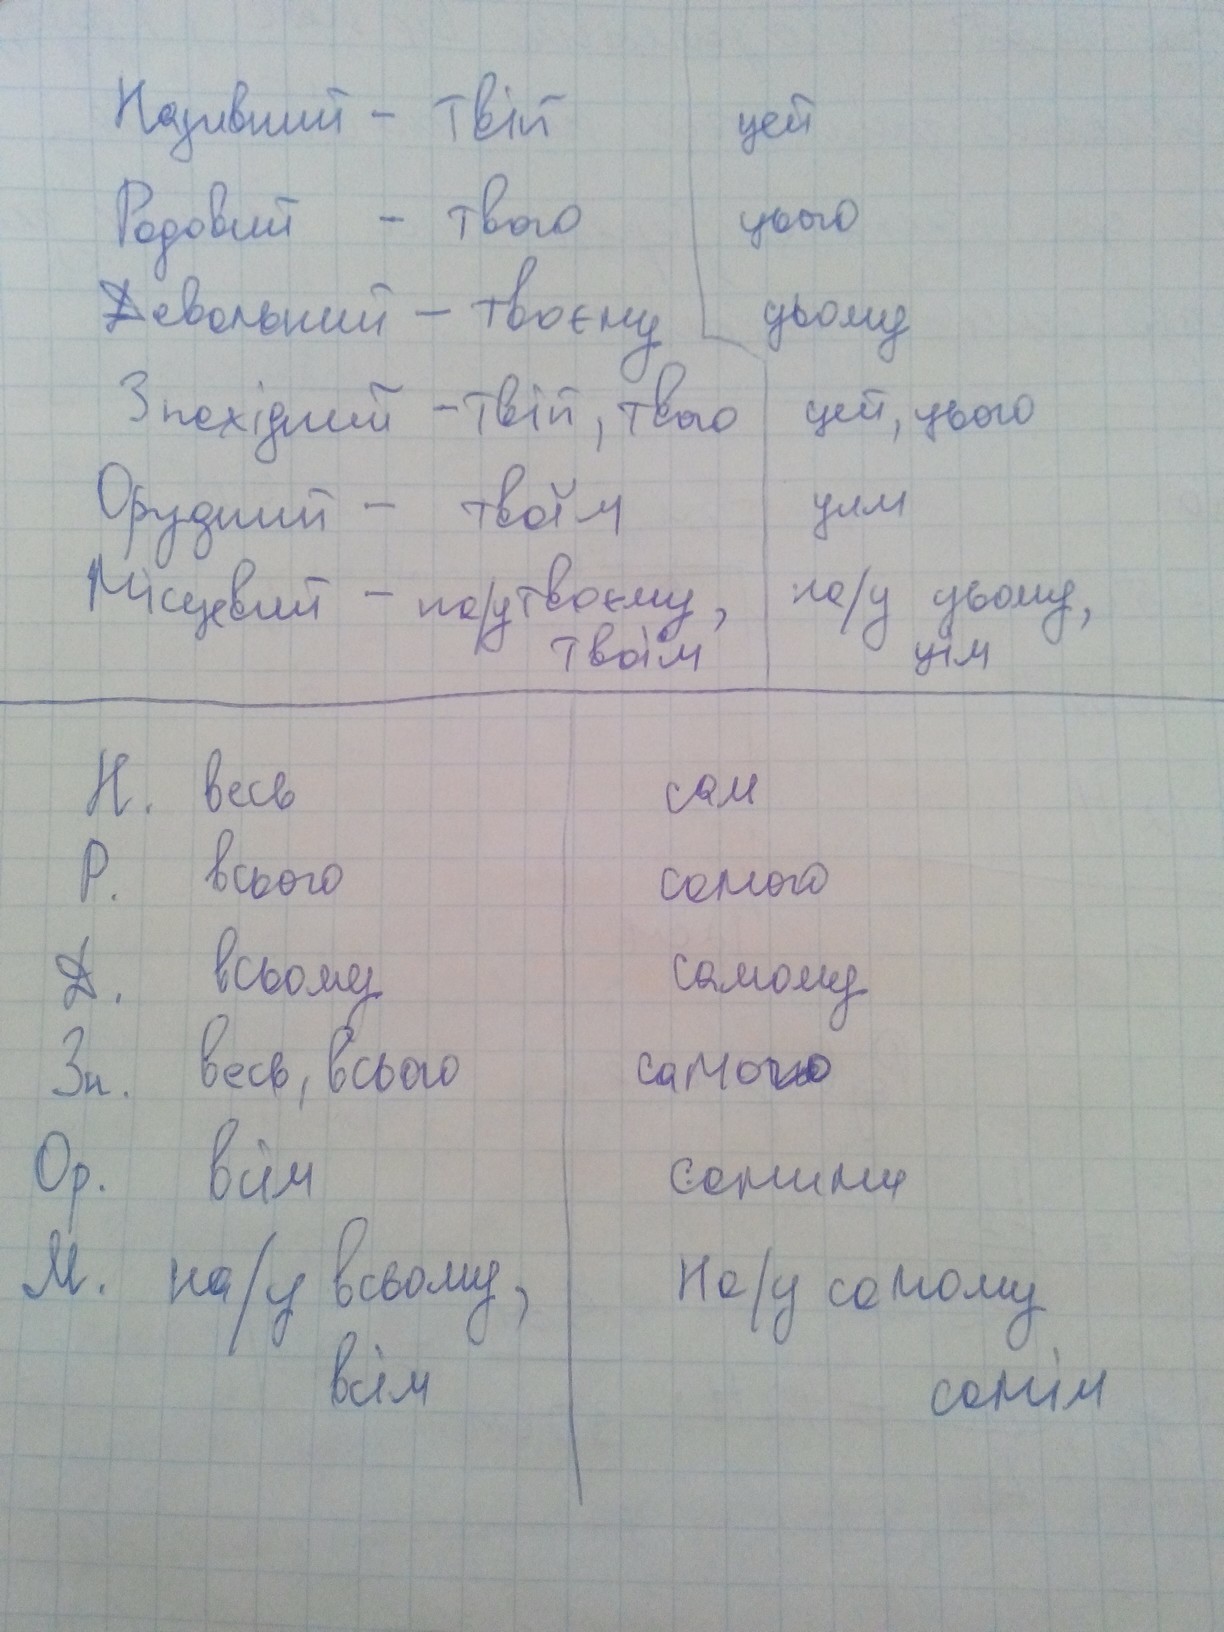 Називний - твій цей
Родовий - твого цього
Давальний - твоєму цьому
Знахідний - твій, твого цей, цього
Орудний - твоїм цим
Місцевий - на/у твоєму, на/у цьому,
твоїм цім
Н. весь сам
Р. всього самого
Д. всьому самому
Зн. весь, всього самого
Ор. всім самим
М. на/у всьому, На/у самому
всім самім